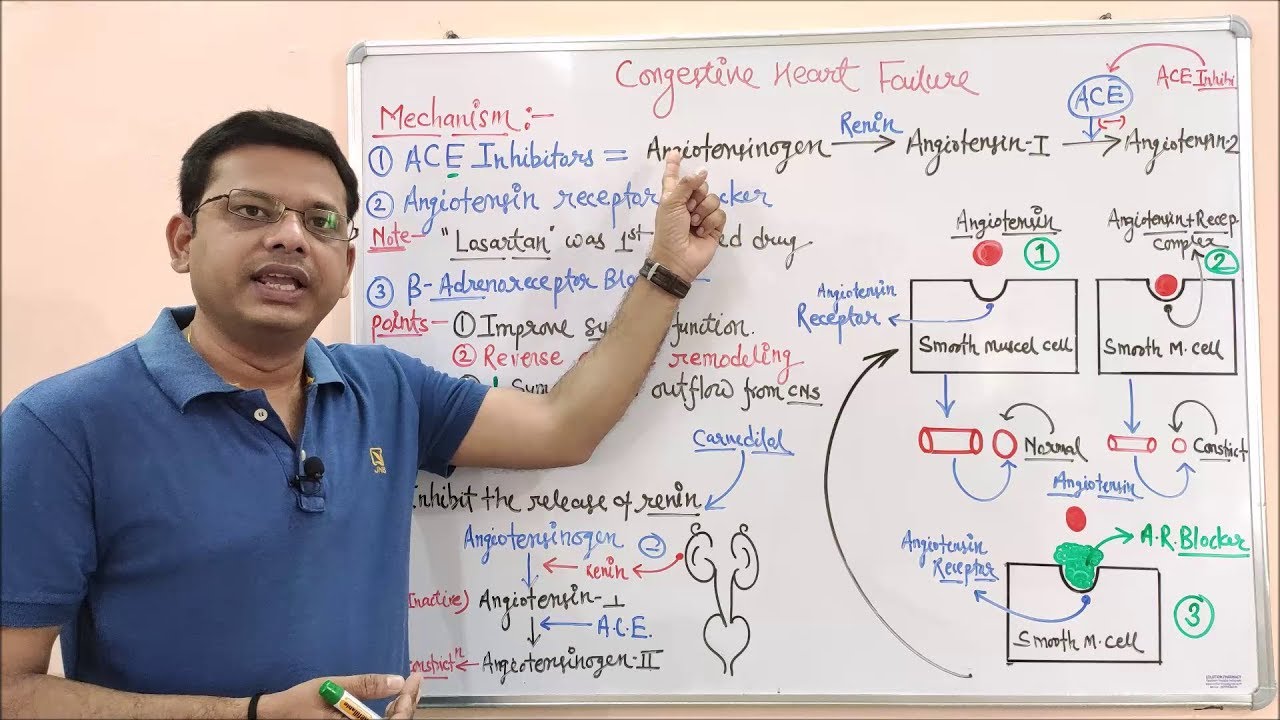 Congestive Heart Failure
Mechanism:-
① ACE Inhibitors = Angiotensinogen Renin Angiotensin-I ACE (-) Angiotensin-2
ACE Inhibi
② Angiotensin receptor
Note- "Losartan" was 1st drug
③ β-Adrenoreceptor
Points- ① Improve function.
② Reverse remodeling
outflow from CNS
Carvedilal
Inhibit the release of renin
Angiotensinogen
renin
(Inactive) Angiotensin-I
A.C.E.
Angiotensinogen-II
Angiotensin
①
Angiotensin+Recep
complex
②
Angiotensin
Receptor
Smooth Muscel cell
Smooth M. cell
Normal
Constrict
Angiotensin
A.R. Blocker
Angiotensin
Receptor
Smooth M. cell
③
SOLUTION PHARMACY